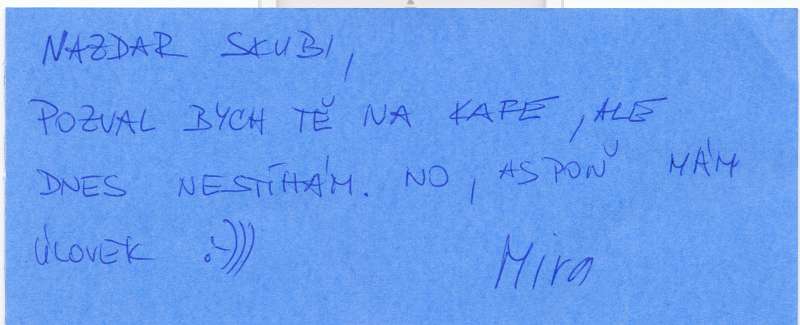 NAZDAR SKUBI,
POZVAL BYCH TĚ NA KAFE, ALE
DNES NESTÍHÁM. NO, ASPOŇ MÁM
ÚLOVEK :-)))
Mira